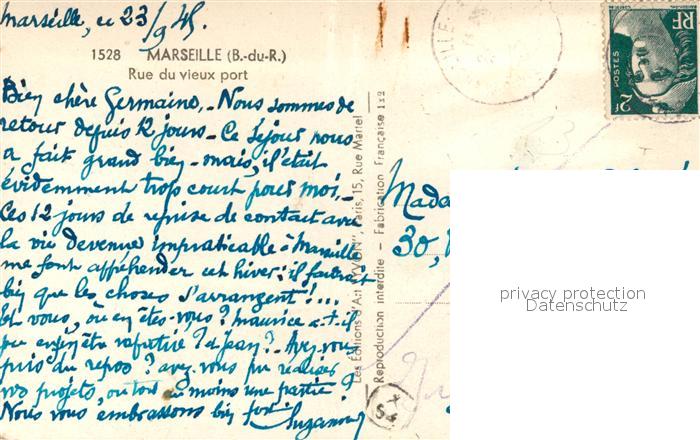 Marseille, ce 23/9 45.
1528 MARSEILLE (B.-du-R.)
Rue du vieux port
Bien chère Germaine, - Nous sommes de
retour depuis 12 jours - Ce séjour nous
a fait grand bien - mais, il était
évidemment trop court pour moi -
Ces 12 jours de reprise de contact avec
la vie devenue impraticable à Marseille
me font appréhender cet hiver : il faudrait
bien que les choses s'arrangent !...
Et vous, où en êtes-vous ? Maurice a-t-il
pu enfin être ? & Jean ? - Avez-vous
puis du repos ? avez-vous pu réaliser
vos projets, ou tout au moins une partie ?
Nous vous embrassons bien fort Suzanne
Les Editions d'Art "YVON", Paris, 15, Rue Martel
Reproduction interdite - Fabrication Française 1x2
RF
POSTES
2F
Mada
30,
privacy protection
Datenschutz